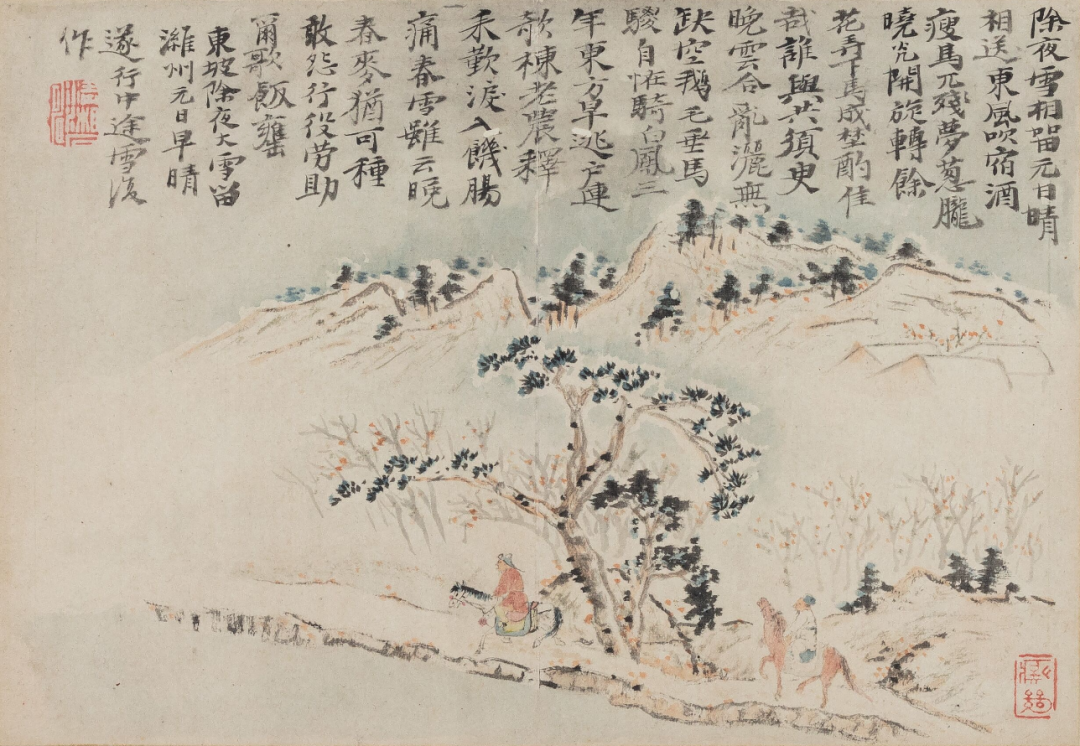 除夜雪相留元日晴
相送東風吹宿酒
瘦馬兀殘夢蔥朧
曉光開旋轉餘
花弄下馬成埜酌佳
哉誰與共須臾
晚雲合亂灑無
缺空鵝毛垂馬
騣自怪騎白鳳三
年東方旱逃戶連
欹棟老農釋
耒歎淚入饑腸
痛春雪雖云晚
春麥猶可種
敢怨行役勞助
爾歌飯甕
東坡除夜大雪留
濰州元日早晴
遂行中途雪復
作